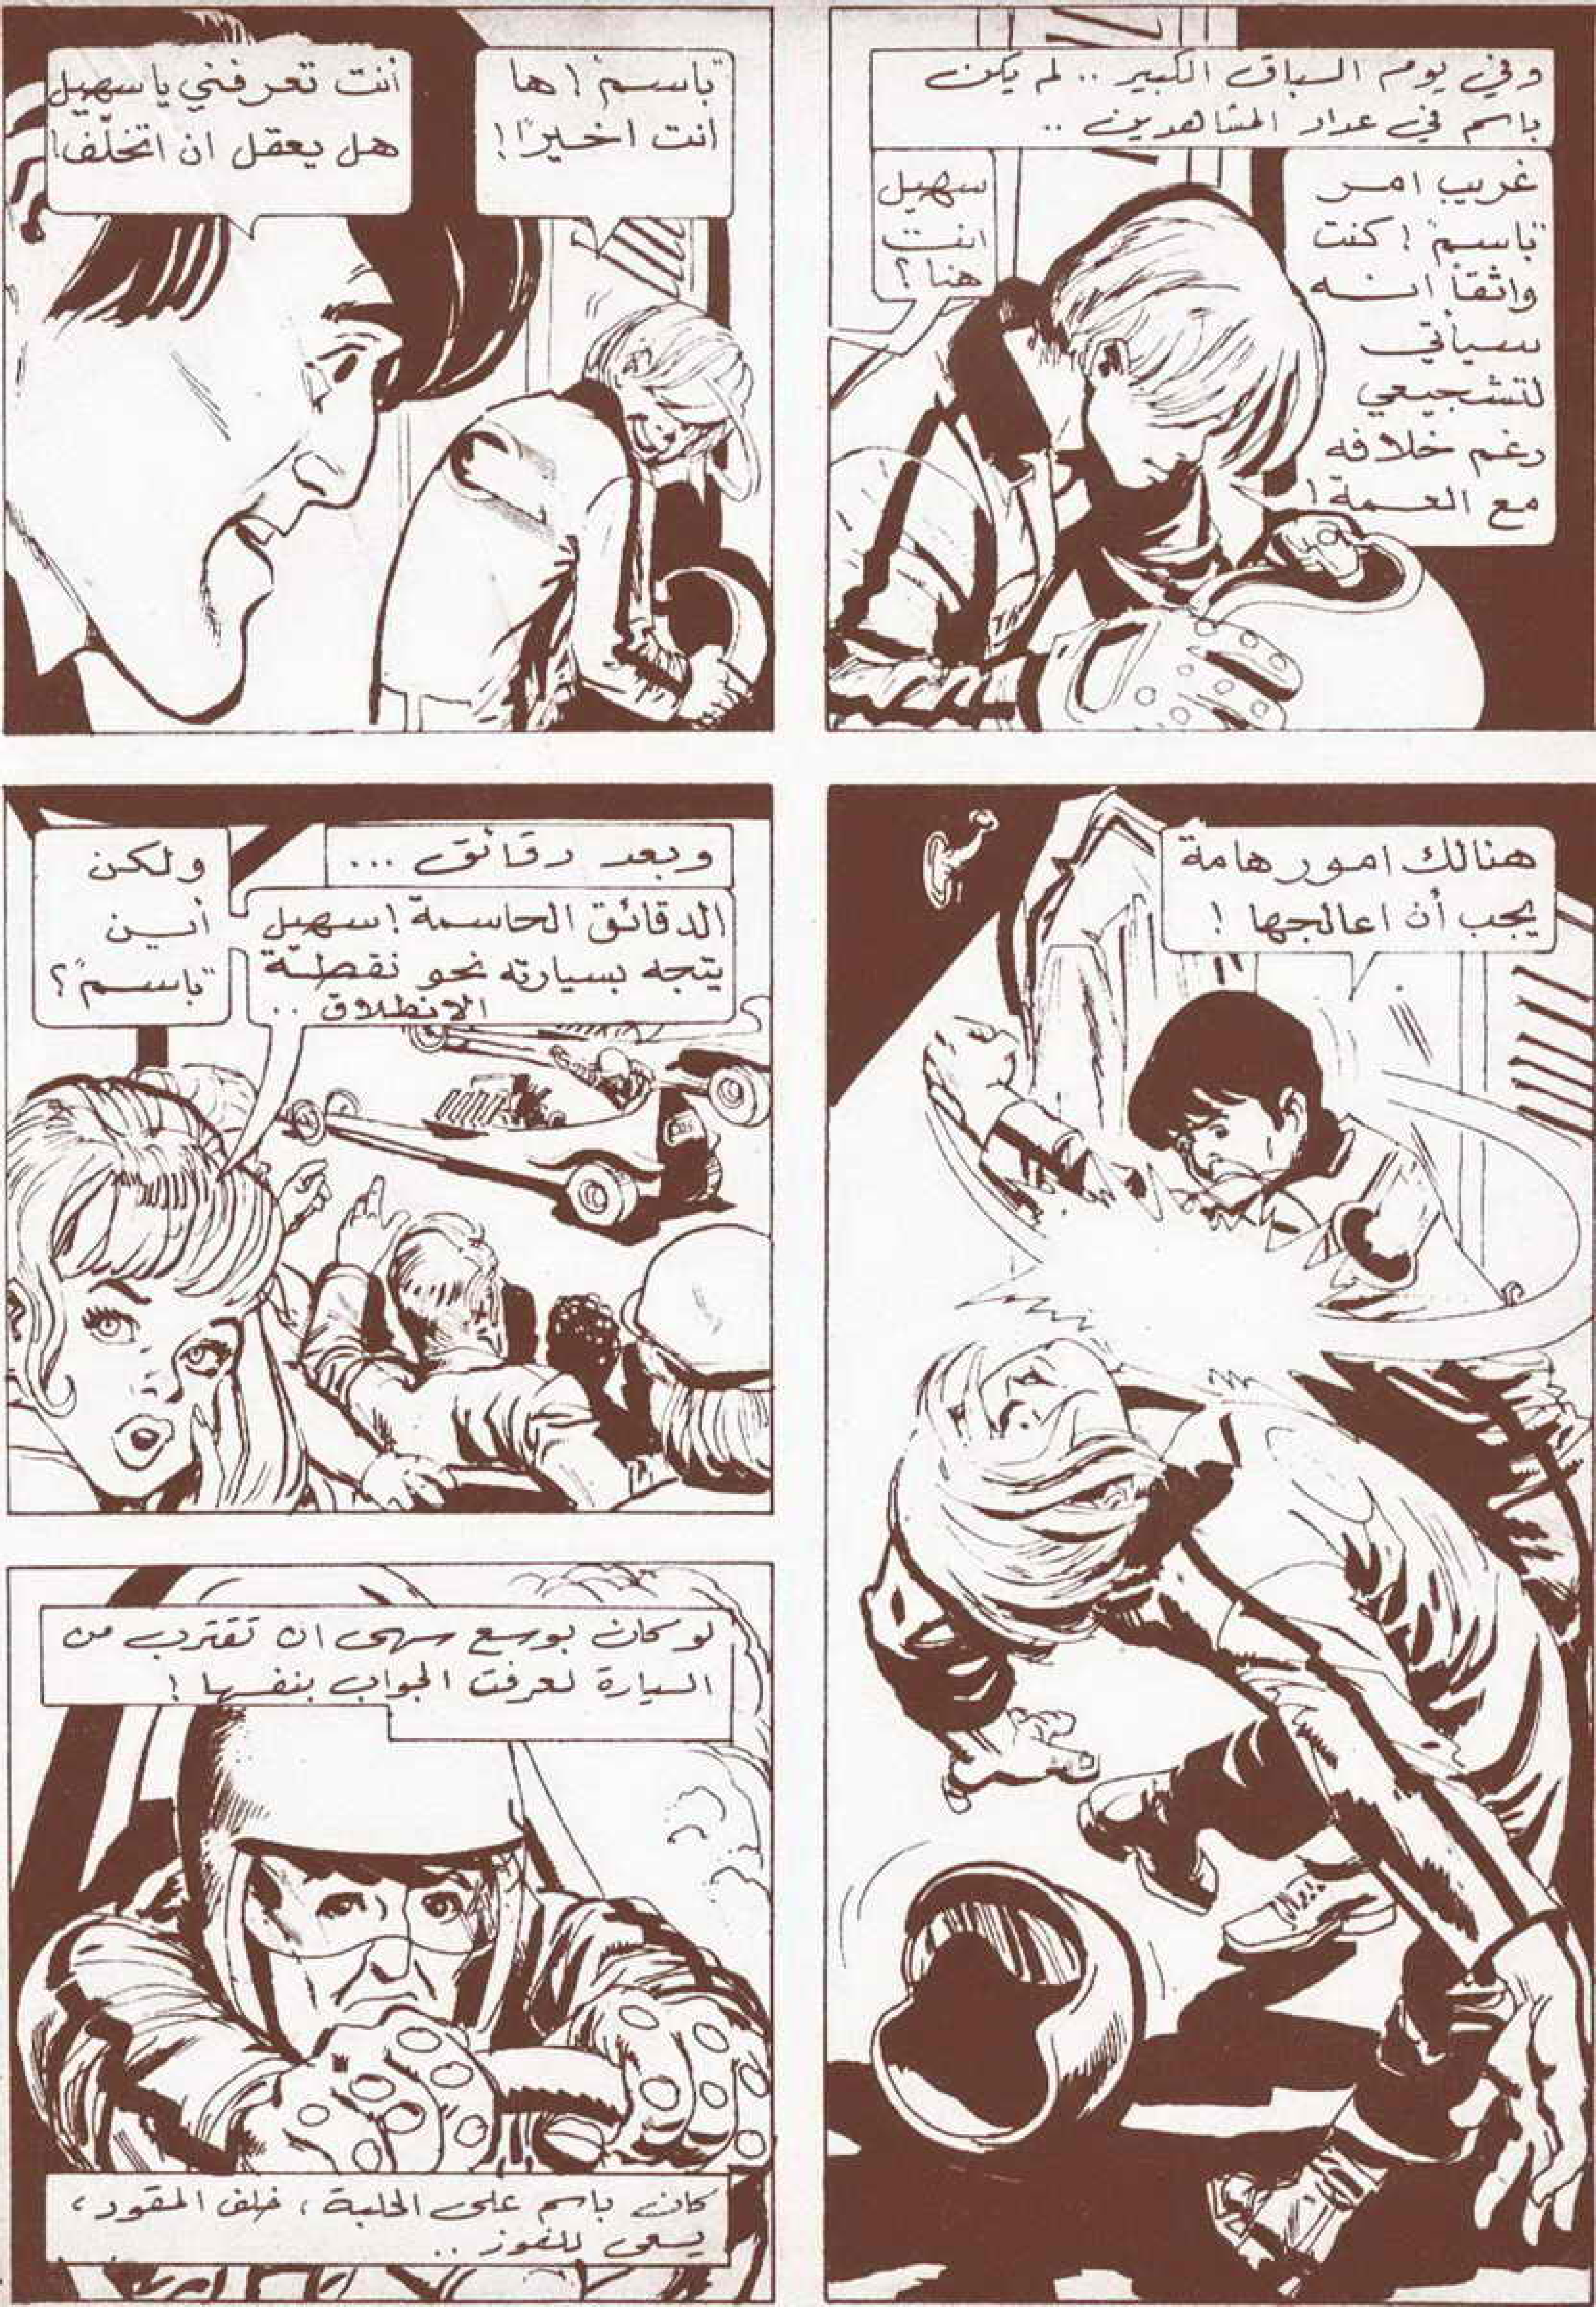 وفي يوم السباق الكبير .. لم يكن
باسم في عداد المشاهدين ..
غريب امر
"باسم" ! كنت
واثقاً انه
سيأتي
لتشجيعي
رغم خلافه
مع العمة !
سهيل
انت
هنا ؟
"باسم" ! ها
انت اخيرًا !
أنت تعرفني يا سهيل
هل يعقل ان اتخلّف !
هنالك امور هامة
يجب أن اعالجها !
وبعد دقائق ...
الدقائق الحاسمة ! سهيل
يتجه بسيارته نحو نقطة
الانطلاق ..
ولكن
أين
"باسم" ؟
لو كان بوسع سهى ان تقترب من
السيارة لعرفت الجواب بنفسها !
كان باسم على الحلبة ، خلف المقود ،
يسعى للفوز ..